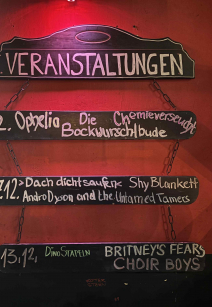 VERANSTALTUNGEN
2. Ophelia Die Chemieverseucht
Bockwurschtbude
7.12. > Dach dicht saufen < Shy Blankett
Andro Dyson and the Untamed Tamers
13.12 DINO STAPELN BRITNEY'S FEARS
CHOIR BOYS